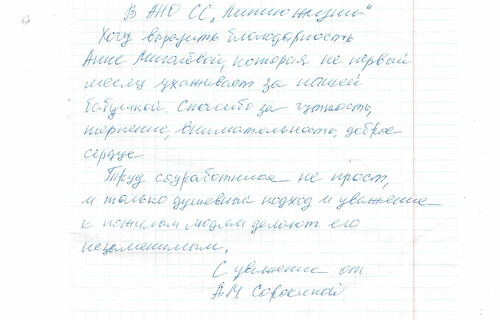 В АНО СС „Линию жизни"
Хочу выразить благодарность
Анне, которая не первый
месяц ухаживает за нашей
бабушкой. Спасибо за чуткость,
терпение, внимательность, доброе
сердце.
Труд соцработника не прост,
и только душевный подход и уважение
к пожилым людям делают его
незаменимым.
С уважение от
А.М.